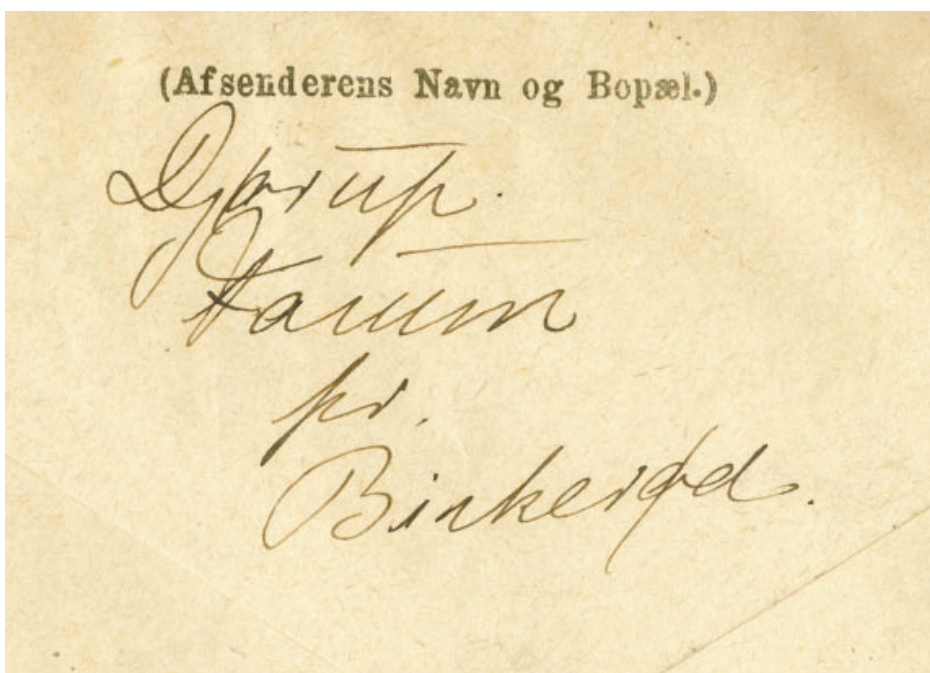 (Afsenderens Navn og Bopæl.)
Djørup.
Farum
pr.
Birkerød.